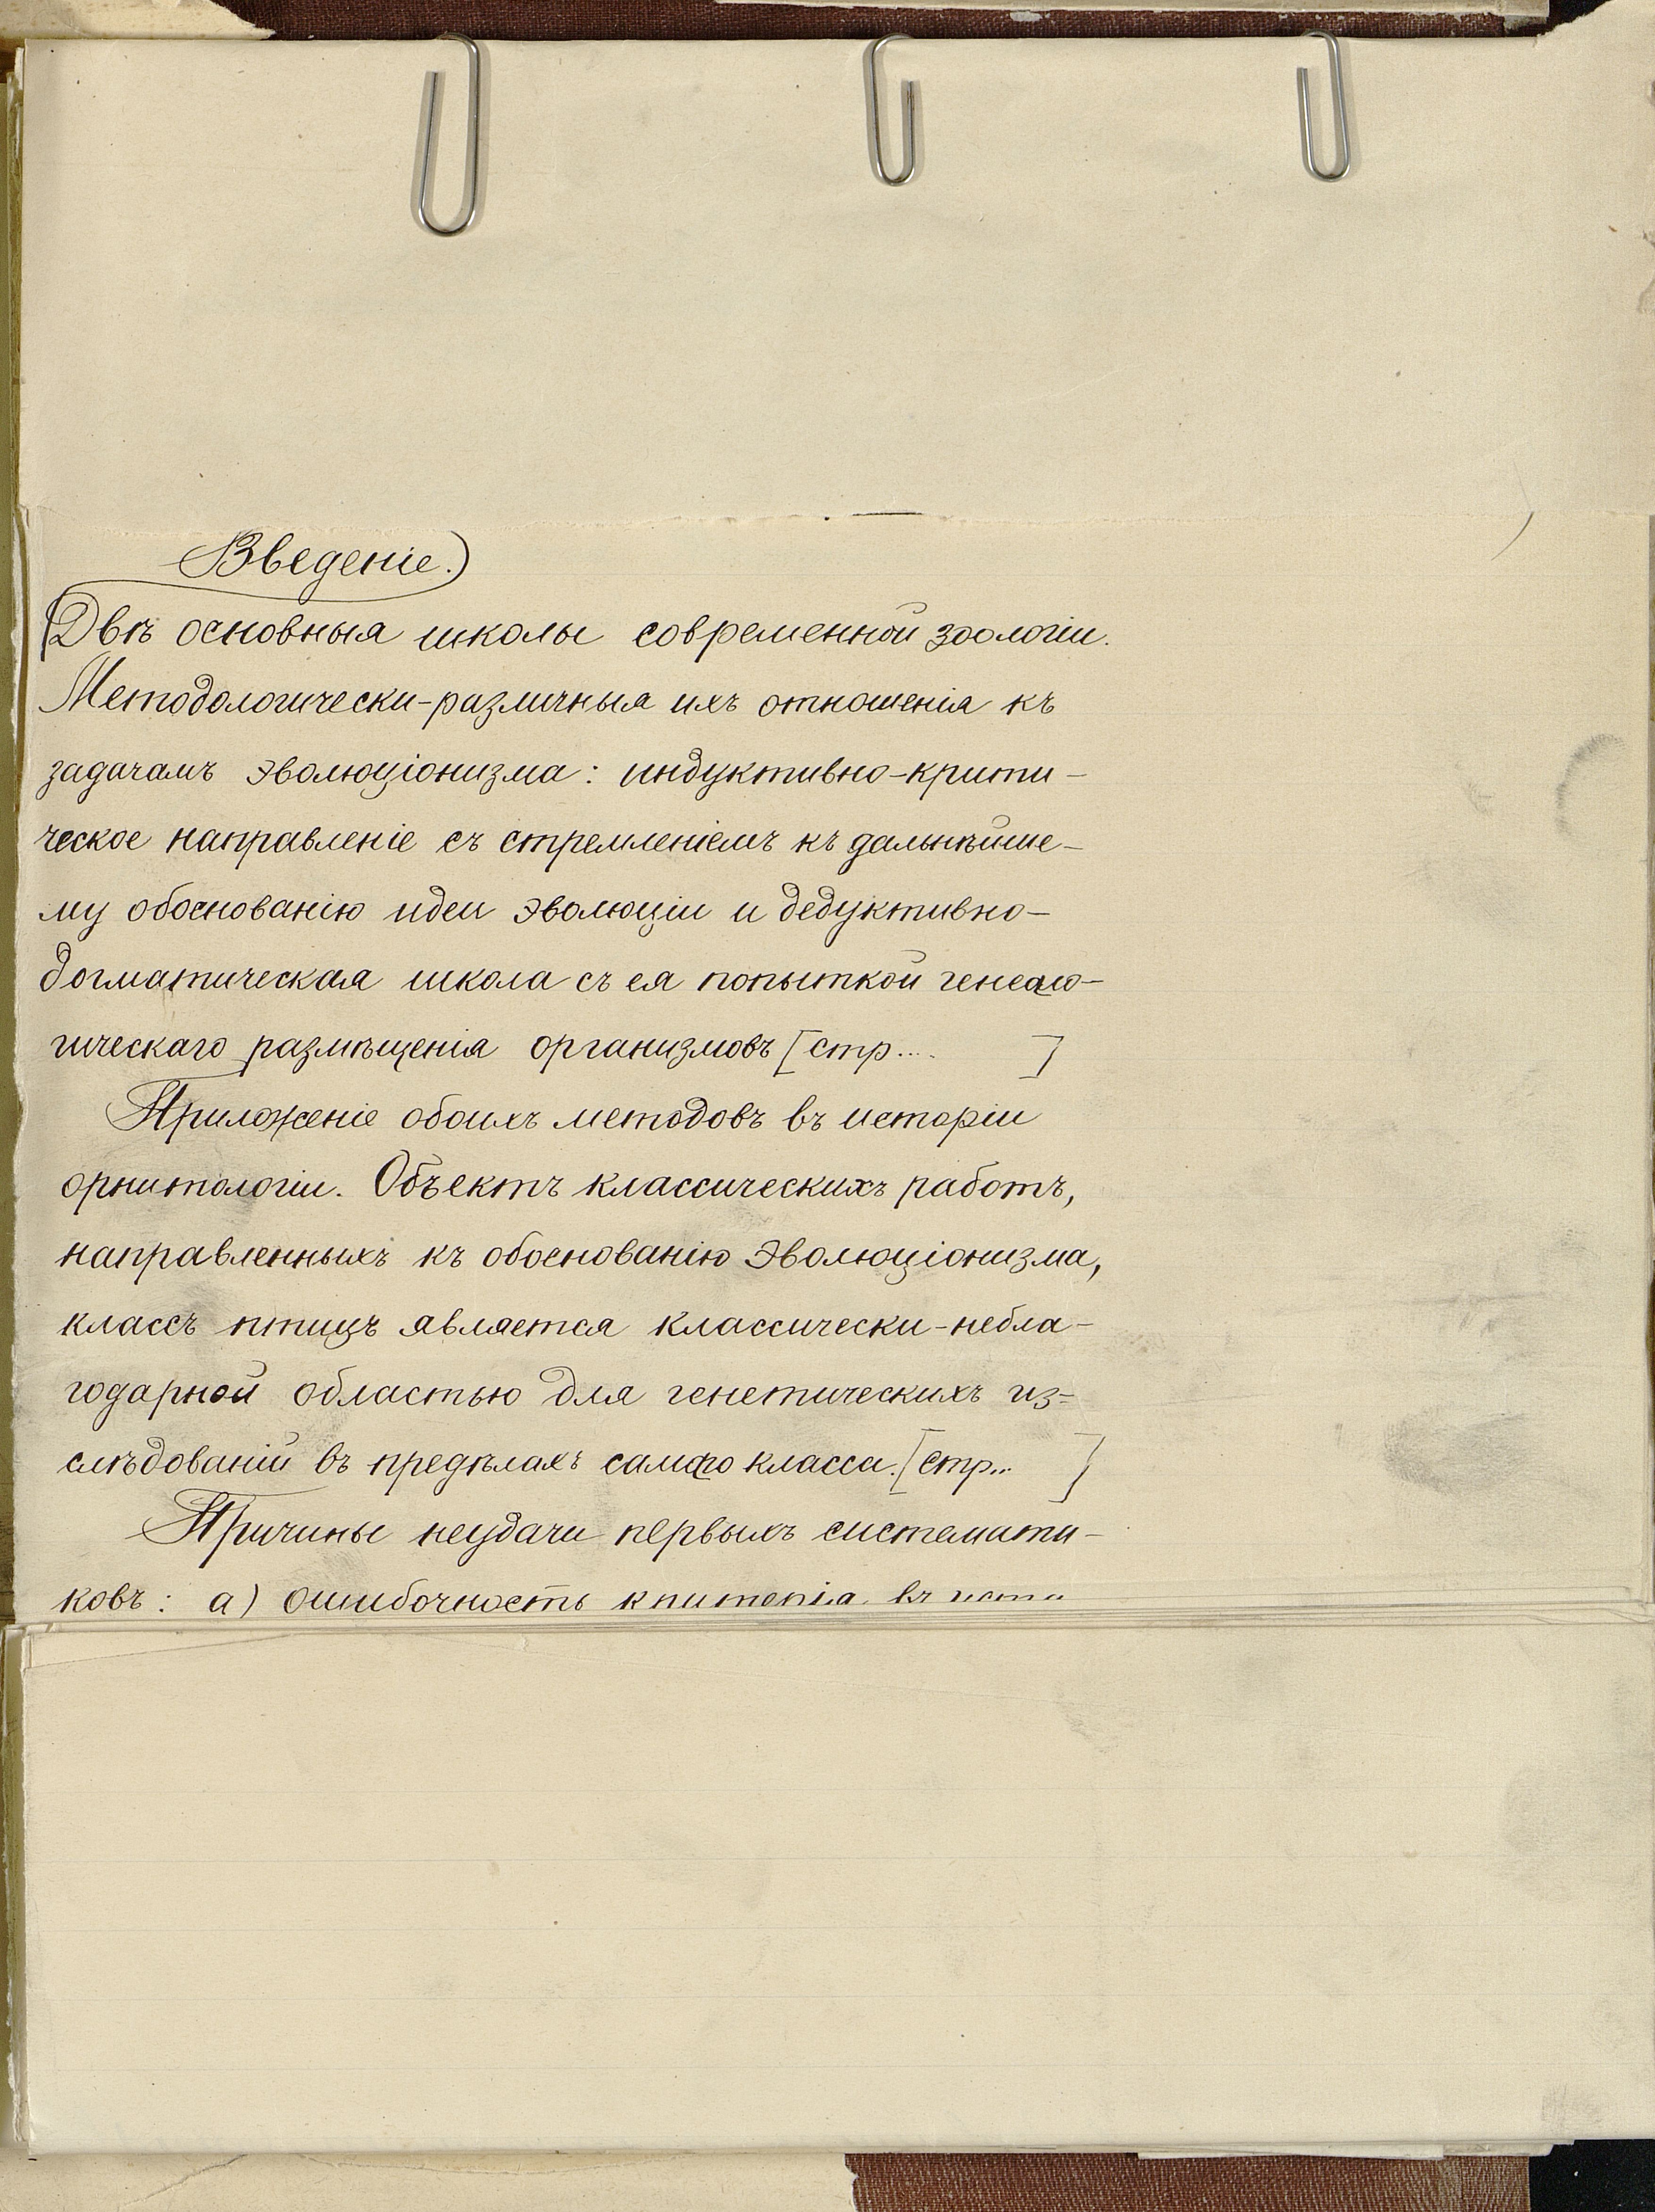 Введенiе.)
(Двѣ основныя школы современной зоологiи.
Методологически-различныя ихъ отношенiя къ
задачамъ эволюцiонизма: индуктивно-крити-
ческое направленiе съ стремленiемъ къ дальнѣйше-
му обоснованiю идеи эволюцiи и дедуктивно-
догматическая школа съ ея попыткой генеало-
гическаго размѣщенiя организмовъ [стр.... ]
Приложенiе обоихъ методовъ въ исторiи
орнитологiи. Объектъ классическихъ работъ,
направленныхъ къ обоснованiю эволюцiонизма,
классъ птицъ является классически-небла-
годарной областью для генетическихъ из-
слѣдованiй въ предѣлахъ самаго класса. [стр... ]
Причины неудачи первыхъ системати-
ковъ: а) ошибочность критерiя въ